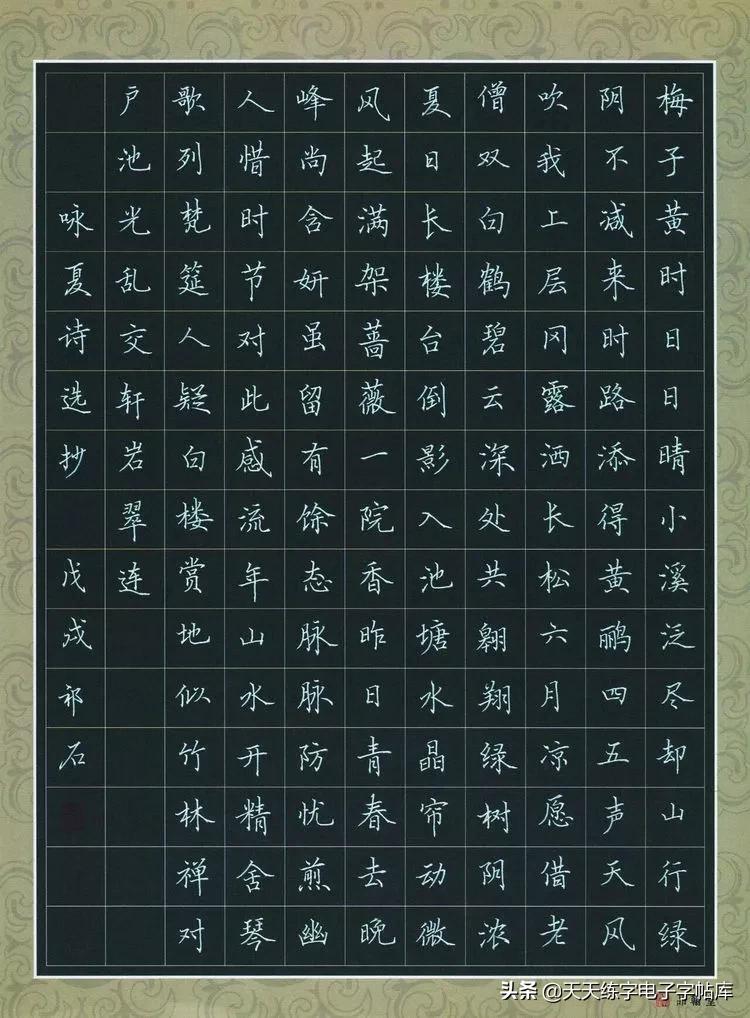 梅子黄时日日晴小溪泛尽却山行绿
阴不减来时路添得黄鹂四五声天风
吹我上层冈露洒长松六月凉愿借老
僧双白鹤碧云深处共翱翔绿树阴浓
夏日长楼台倒影入池塘水晶帘动微
风起满架蔷薇一院香昨日青春去晚
峰尚含妍虽留有馀态脉脉防忧煎幽
人惜时节对此感流年山水开精舍琴
歌列梵筵人疑白楼赏地似竹林禅对
户池光乱交轩岩翠连
咏夏诗选抄 戊戌 祁石
头条 @天天练字电子字帖库